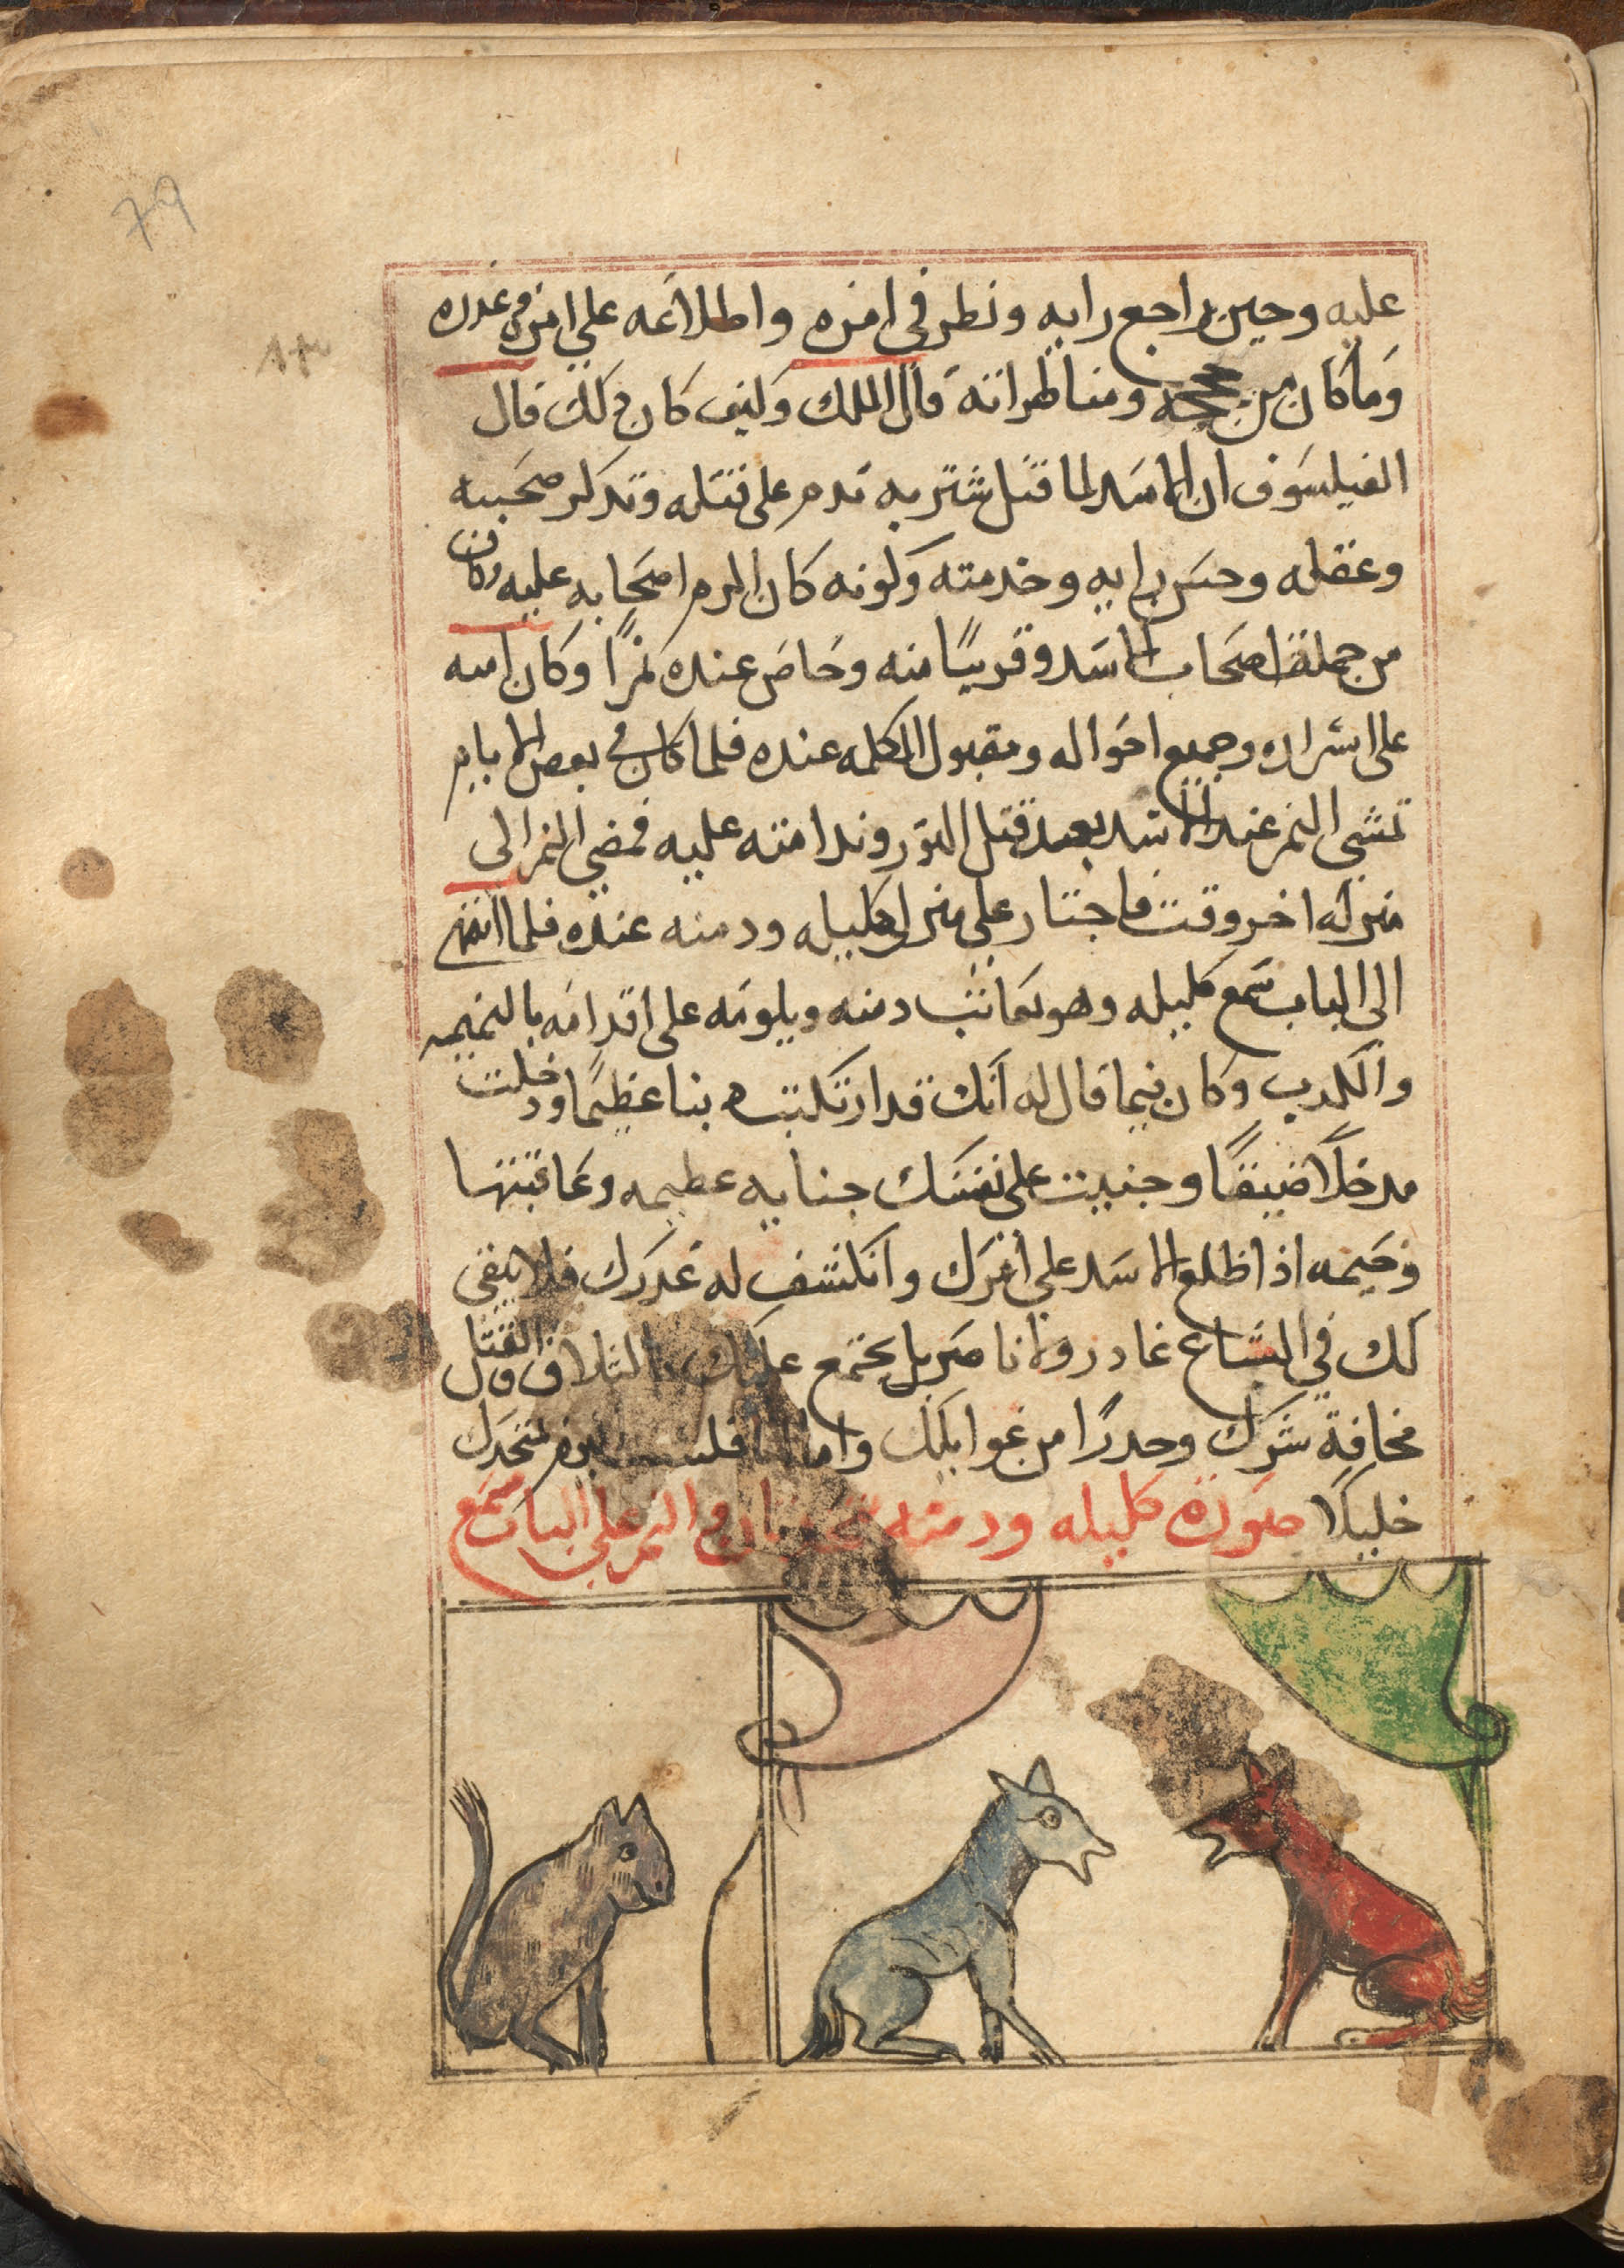 79
عليه وحين راجع رايه ونظر في امره واطلاعه علي امره وغدره
وما كان من حججه ومناظراته قال الملك وكيف كان ذلك قال
الفيلسوف ان الاسد لما قتل شتربه ندم على قتله وتذكر صحبته
وعقله وحسن رايه وخدمته وكونه كان اكرم اصحابه عليه وكان
من جملة اصحاب الاسد وقريبًا منه وخاص عنده نمرًا وكان امينه
على اسراره وجميع احواله ومقبول الكلمه عنده فلما كان في بعض الايام
تمشي النمر عند الاسد بعد قتل الثور وندامته عليه فمضي النمر الى
منزله اخر وقت فاجتاز علي منزل كليله ودمنه عنده فلما انتهى
الى الباب سمع كليله وهو يعاتب دمنه ويلومه على اقدامه بالنميمه
والكذب وكان فيما قال له انك قد ارتكبت ذنبا عظيمًا ودخلت
مدخلًا ضيقًا وجنيت على نفسك جنايه عظيمه وعاقبتها
وخيمه اذا اطلع الاسد علي امرك وانكشف له غدرك فلا يبقى
لك في السباع عاذر ولا ناصر بل يجتمع عليك بالتلاف والقتل
مخافة شرك وحذرًا من غوايلك واما انا فلست اليوم متخذك
خليلًا صورة كليله ودمنه والنمر على الباب سمع